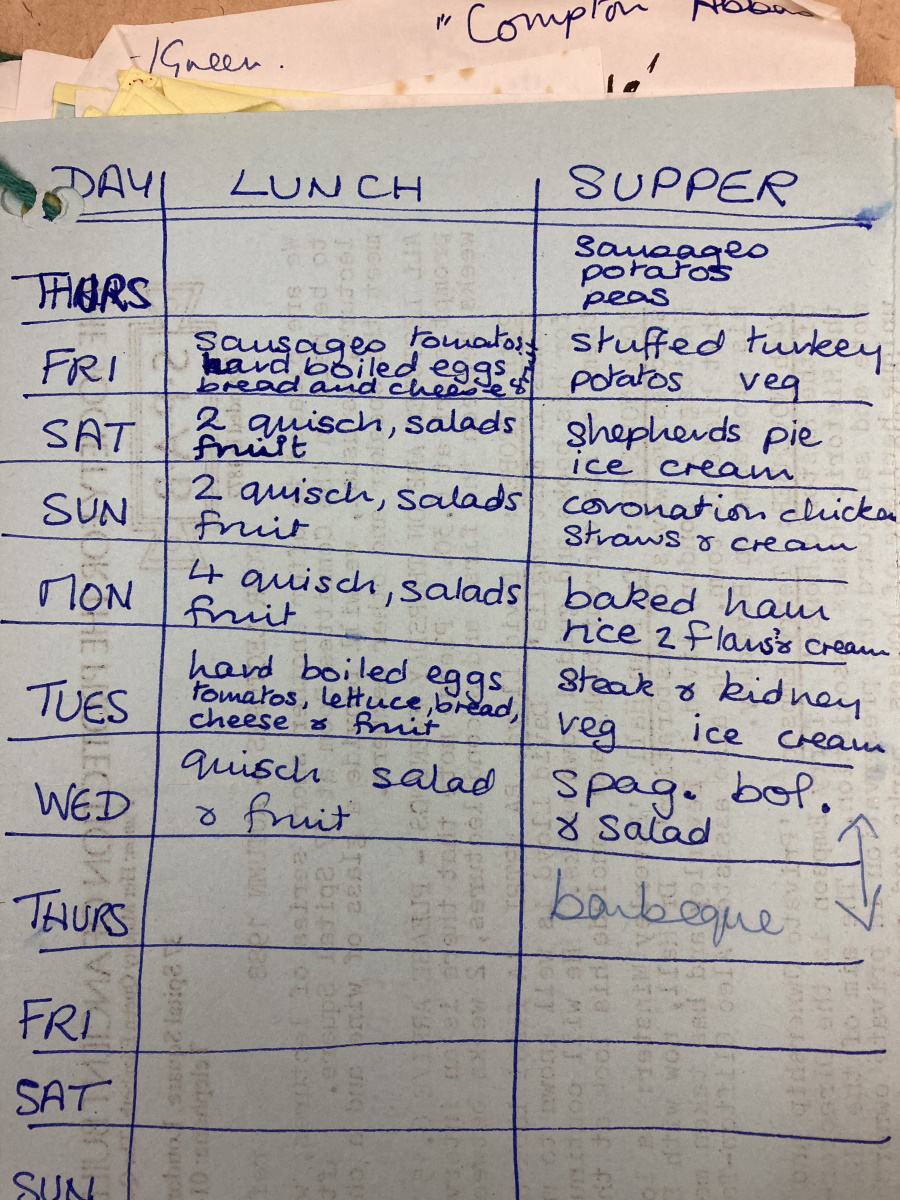 "Compton Abbas
-/Green.
DAY LUNCH SUPPER
sausages
potatos
THURS peas
sausages tomatos, stuffed turkey
FRI hard boiled eggs potatos veg
bread and cheese &
SAT 2 quisch, salads shepherds pie
fruit ice cream
SUN 2 quisch, salads coronation chicken
fruit straws & cream
MON 4 quisch, salads baked ham
fruit rice 2 flans? & cream
hard boiled eggs steak & kidney
TUES tomatos, lettuce, bread, veg ice cream
cheese & fruit
WED quisch salad spag. bol.
& fruit & salad
THURS barbeque
FRI
SAT
SUN